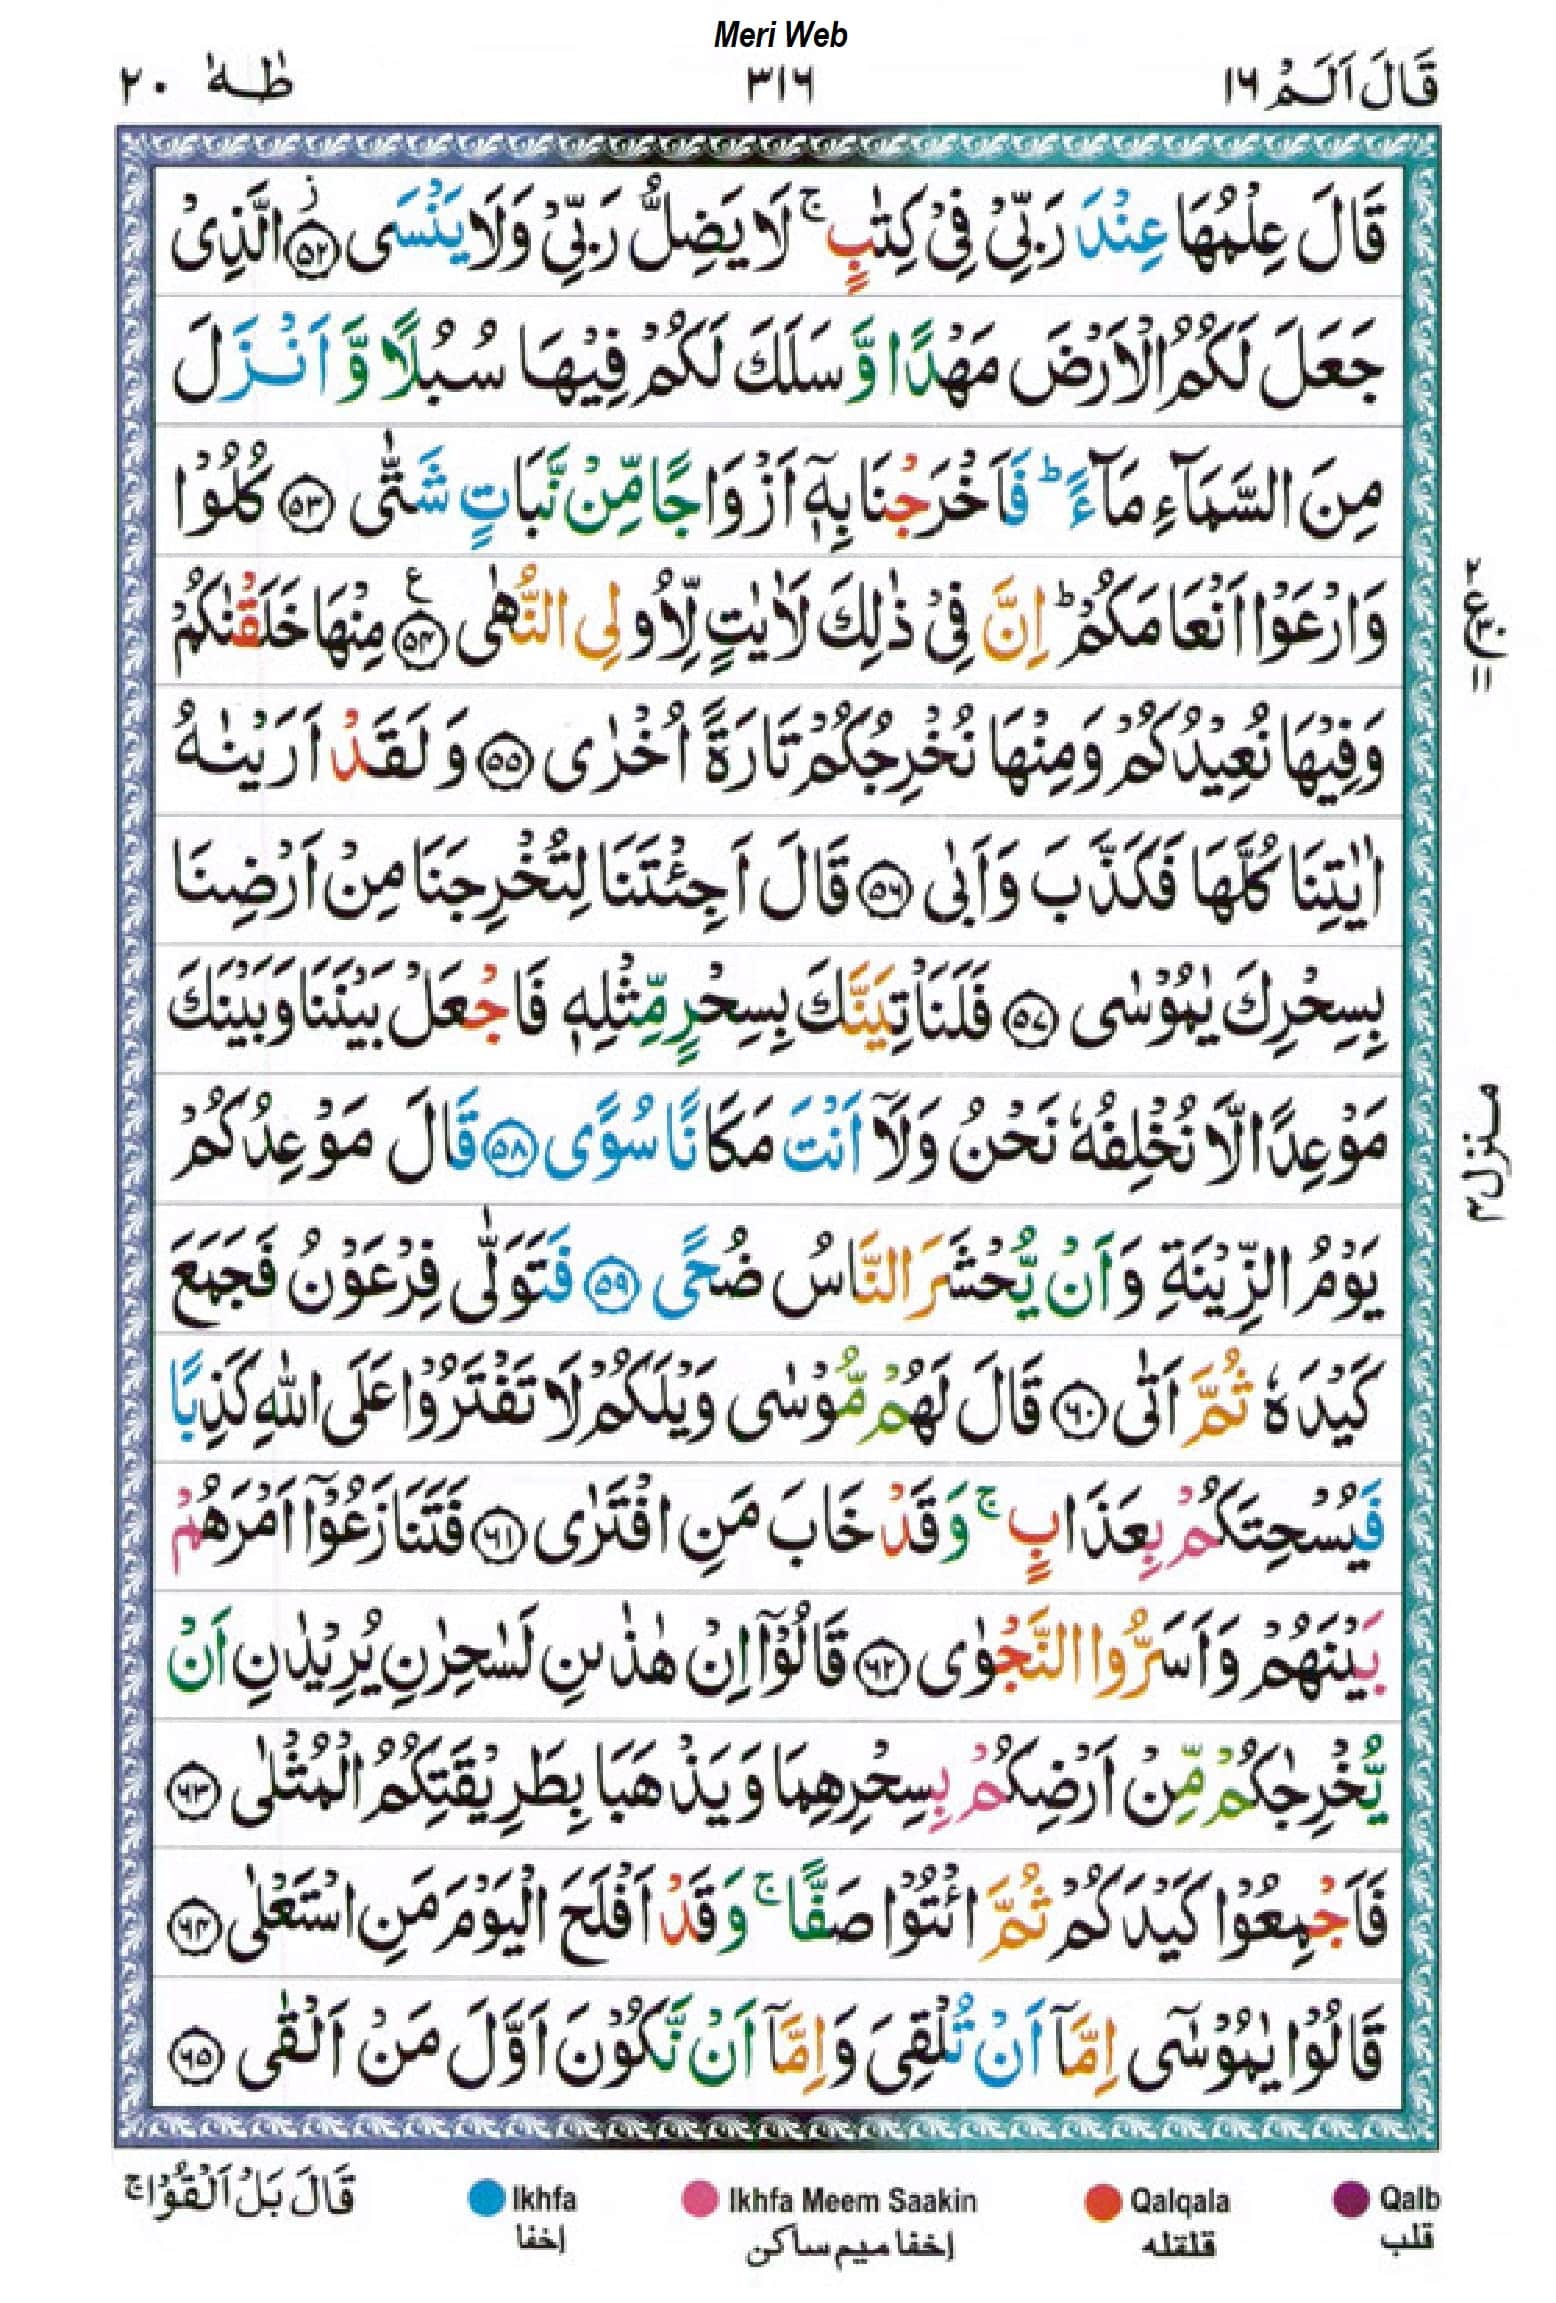 Meri Web
قَالَ اَلَمْ ١٦ ٣١٦ طٰهٰ ٢٠
قَالَ عِلْمُهَا عِنْدَ رَبِّىْ فِىْ كِتٰبٍ ۚ لَا يَضِلُّ رَبِّىْ وَلَا يَنْسَى ﴿۵۲﴾ ز الَّذِىْ
جَعَلَ لَكُمُ الْاَرْضَ مَهْدًا وَّ سَلَكَ لَكُمْ فِيْهَا سُبُلًا وَّ اَنْزَلَ
مِنَ السَّمَآءِ مَآءً ؕ فَاَخْرَجْنَا بِهٖۤ اَزْوَاجًا مِّنْ نَّبَاتٍ شَتّٰى ﴿۵۳﴾ كُلُوْا
وَارْعَوْا اَنْعَامَكُمْ ؕ اِنَّ فِىْ ذٰلِكَ لَاٰيٰتٍ لِّاُولِى النُّهٰى ﴿۵۴﴾ ع مِنْهَا خَلَقْنٰكُمْ
وَفِيْهَا نُعِيْدُكُمْ وَمِنْهَا نُخْرِجُكُمْ تَارَةً اُخْرٰى ﴿۵۵﴾ وَ لَقَدْ اَرَيْنٰهُ
اٰيٰتِنَا كُلَّهَا فَكَذَّبَ وَاَبٰى ﴿۵۶﴾ قَالَ اَجِئْتَنَا لِتُخْرِجَنَا مِنْ اَرْضِنَا
بِسِحْرِكَ يٰمُوْسٰى ﴿۵۷﴾ فَلَنَاْتِيَنَّكَ بِسِحْرٍ مِّثْلِهٖ فَاجْعَلْ بَيْنَنَا وَبَيْنَكَ
مَوْعِدًا لَّا نُخْلِفُهٗ نَحْنُ وَلَاۤ اَنْتَ مَكَانًا سُوًى ﴿۵۸﴾ قَالَ مَوْعِدُكُمْ
يَوْمُ الزِّيْنَةِ وَاَنْ يُّحْشَرَ النَّاسُ ضُحًى ﴿۵۹﴾ فَتَوَلّٰى فِرْعَوْنُ فَجَمَعَ
كَيْدَهٗ ثُمَّ اَتٰى ﴿۶۰﴾ قَالَ لَهُمْ مُّوْسٰى وَيْلَكُمْ لَا تَفْتَرُوْا عَلَى اللّٰهِ كَذِبًا
فَيُسْحِتَكُمْ بِعَذَابٍ ۚ وَقَدْ خَابَ مَنِ افْتَرٰى ﴿۶۱﴾ فَتَنَازَعُوْۤا اَمْرَهُمْ
بَيْنَهُمْ وَاَسَرُّوا النَّجْوٰى ﴿۶۲﴾ قَالُوْۤا اِنْ هٰذٰىنِ لَسٰحِرٰنِ يُرِيْدٰنِ اَنْ
يُّخْرِجٰكُمْ مِّنْ اَرْضِكُمْ بِسِحْرِهِمَا وَ يَذْهَبَا بِطَرِيْقَتِكُمُ الْمُثْلٰى ﴿۶۳﴾
فَاَجْمِعُوْا كَيْدَكُمْ ثُمَّ ائْتُوْا صَفًّا ۚ وَقَدْ اَفْلَحَ الْيَوْمَ مَنِ اسْتَعْلٰى ﴿۶۴﴾
قَالُوْا يٰمُوْسٰٓى اِمَّاۤ اَنْ تُلْقِىَ وَ اِمَّاۤ اَنْ نَّكُوْنَ اَوَّلَ مَنْ اَلْقٰى ﴿۶۵﴾
منزل ٣
قَالَ بَلْ اَلْقُوْا ۚ
Ikhfa Ikhfa Meem Saakin Qalqala Qalb
إخفا إخفا ميم ساكن قلقله قلب